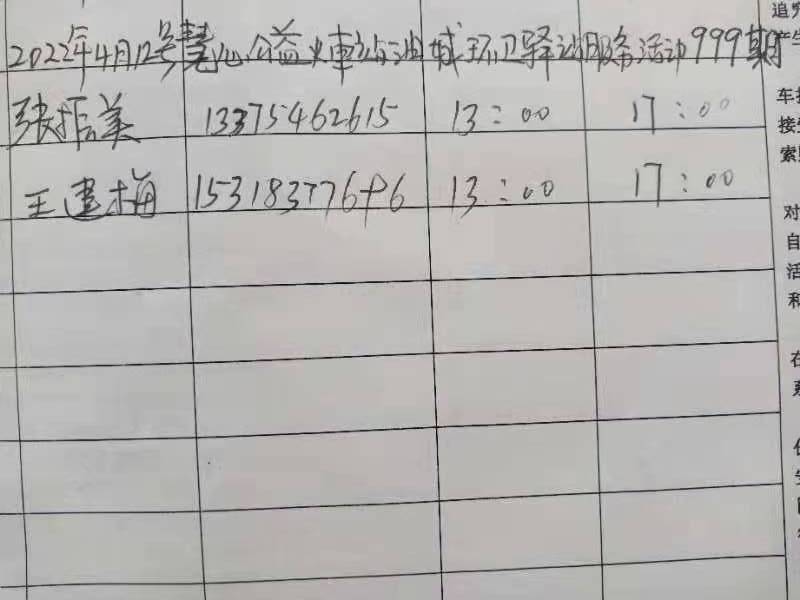 2022年4月12号慧心公益火車站油城环卫驿站服务活动999期
张振美 13375462615 13:00 17:00
王建梅 15318377676 13:00 17:00
追究
产生
车
接受
索
对
自
活
和
在